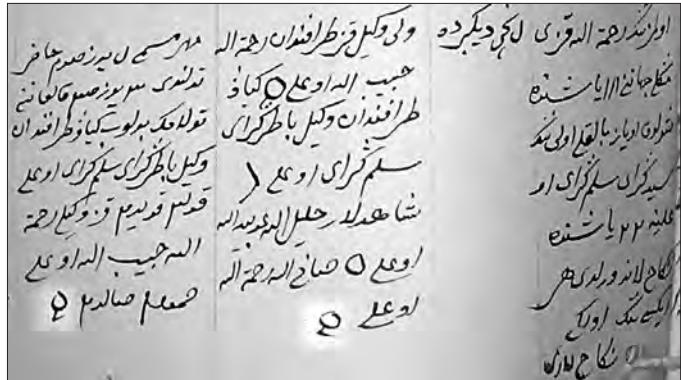 رحمة الله قزى نجى ديكبرده
ياشنده
اوياز بالقلج اولىنك
سيدكراى سلمكراى او
علينه ٢٢ ياشنده
نكاح لاندورلدى هر
ايكسىنك اولكى
نكاح لارى
ولى وكيل قز طرافندان رحمة الله
حبيب الله اوعلى كياو
طرافندان وكيل باطركراى
سلمكراى اوعلى
شاهدلار خليل الله عبيد الله
اوعلى رحمة الله
اوعلى
مهر مسمى يوز صوم حاضر
يوز صوم قالغاننى
تولامك بولوب كياو طرافندان
وكيل باطركراى سلمكراى اوعلى
قولم قويدم قز وكيلى رحمة
الله حبيب الله اوعلى
تمغام صالدم